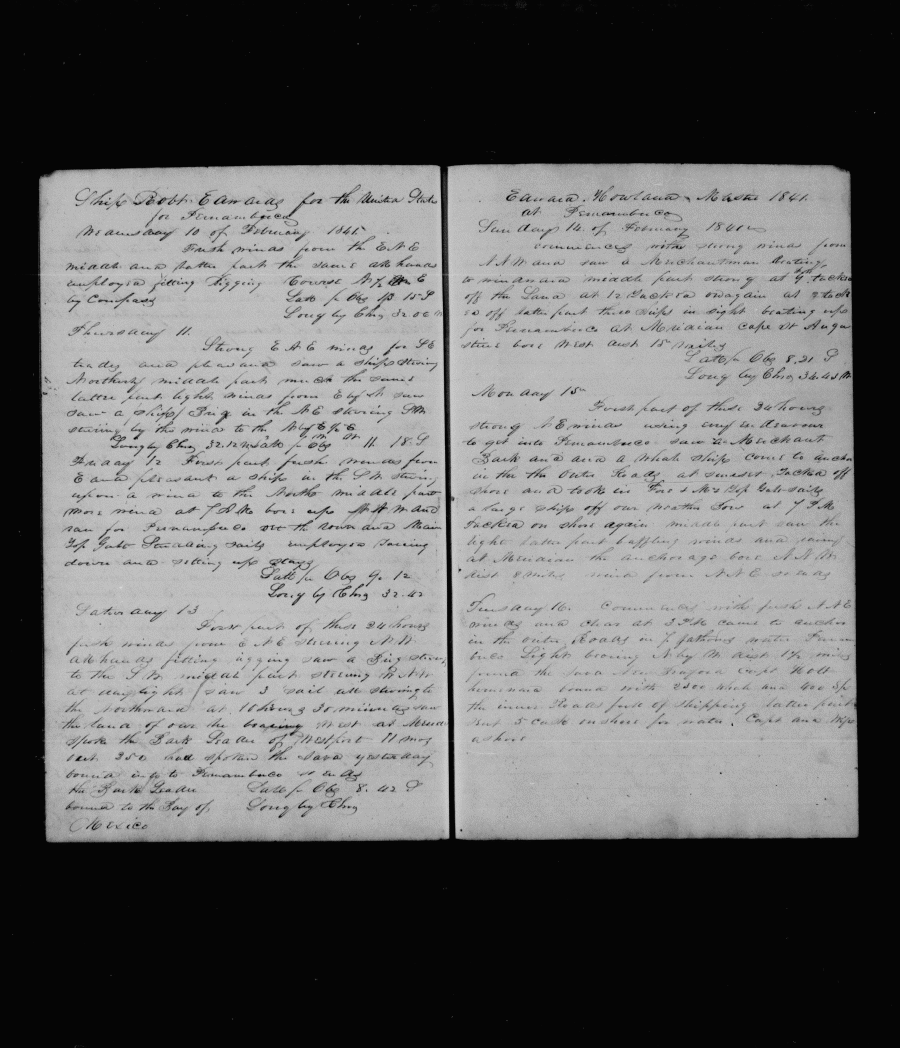 Ship Robt. Edwards for the United States
for Pernambuco
Wednesday 10 of February 1841
Fresh winds from the E N E
middle and latter part the same all hands
employed fitting rigging Course N E
by Compass Latt p Obs 13 15 S
Long by Chro 32.00 W
Thursday 11.
Strong E N E winds for SE
trades and pleasand saw a ship stering
Northerly middle part much the same
latter part light winds from E by N saw
saw a ship / Brig in the NE stevring SW
stering by the wind to the N by E
Long by Chro 32.12 W Latt p Obs 11 18 S
Friday 12 First part fresh winds from
E and pleasant a ship in the SW stering
upon a wind to the North middle part
more wind at 7 bore up W and
ran for Pernambuco set the down and Main
Top Galt Studding sails employed
down and sitting up stays
Latt p Obs 9. 12
Long by Chro 32.42
Saturday 13
First part of these 24 hours
fresh winds from E N E stering N W
all hands fitting rigging saw a Brig stering
to the S W middle part stering W N W
at daylight saw 3 sail all stering to
the Northward at 10 hours 30 minutes saw
the land of bearing West at Meridian
spoke the Bark Leader of Westport 11 mos
out 350 had spoken the Java yesterday
bound in to Pernambuco
the Bark Leader Latt p Obs 8.42 S
bound to the Bay of Long by Chro
Mexico
Edward Howland Master 1841
at Pernambuco
Sunday 14 of February 1841
commences with strong winds from
N N W and saw a Merchantman beating
to windward middle part strong at tacked
off the Land at 12 Tacked again at tack
ed off latter part three ships in sight beating up
for Pernambuco at Meridian Cape St Augu
stine bore West dist 15 miles
Latt p Obs 8.21 S
Long by Chro 34.43 W
Monday 15
First part of these 24 hours
strong N E winds using every endeavour
to get into Pernambuco saw a Merchant
Bark and a Whale Ship come to anchor
in the Outer Roads at sunset Tacked off
shore and took in Fore & M Top Galt sails
a large ship off our weather bow at 7 P M
Tacked on shore again middle part saw the
light latter part baffling winds and rainy
at Meridian the anchorage bore N N W
dist 8 miles wind from N N E
Tuesday 16. Commences with fresh N N E
winds and clear at 3 P M came to anchor
in the outer Roads in 7 fathoms water Pernam
buco Light bearing N by W dist 1½ miles
found the Java New Capt
bound with 2300 whale and 400 Sp
the inner Roads full of shipping latter part
sent 5 cask on shore for water. Capt and Wife
ashore